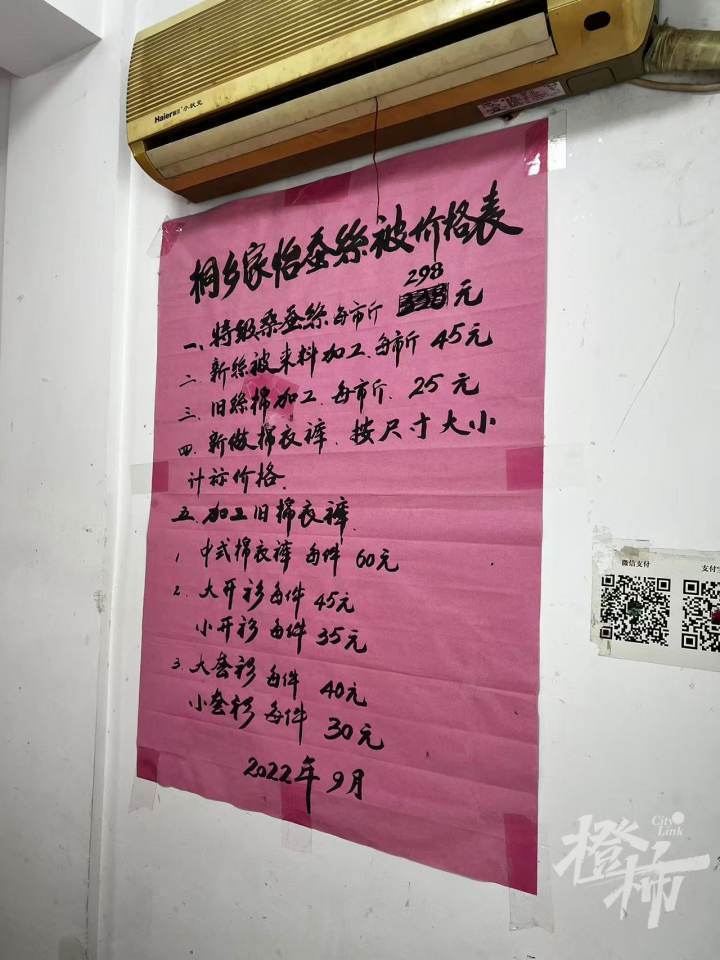 Haier 海尔 小状元
桐乡家怡蚕絲被价格表
298
一、特級桑蚕絲每市斤 元
二.新絲被来料加工.每市斤45元
三.旧絲棉加工.每市斤.25元
四.新做棉衣裤.按尺寸大小
计标价格.
五.加工旧棉衣裤.
1.中式棉衣裤每件60元
2.大开衫每件45元
小开衫每件35元
3.大套衫每件40元
小套衫每件30元
2022年9月
微信支付
支付
City Link
橙柿